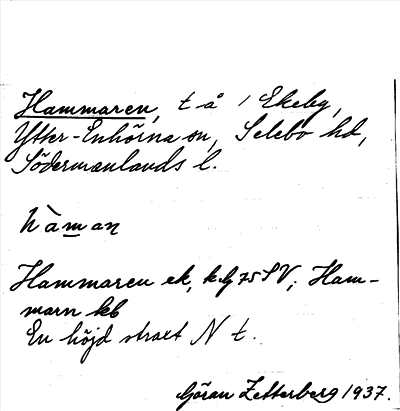 Hammaren, t å / Ekeby,
Ytter-Enhörna sn, Selebo hd,
Södermanlands l.
hàman
Hammaren ek, 75 SV; Ham-
marn kb
En höjd straxt N t.
Göran Zetterberg 1937.